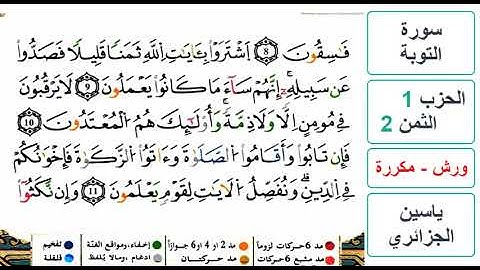 فَٰسِقُونَ ۝8 اَ۪شْتَرَوْاْ بِـَٔايَٰتِ اِ۬للَّهِ ثَمَناٗ قَلِيلاٗ فَصَدُّواْ
عَن سَبِيلِهِۦٓۖ إِنَّهُمْ سَآءَ مَا كَانُواْ يَعْمَلُونَ ۝9 لَا يَرْقُبُونَ
فِے مُومِنٍ اِلّاٗ وَلَا ذِمَّةٗۖ وَأُوْلَٰٓئِكَ هُمُ اُ۬لْمُعْتَدُونَ ۝10
فَإِن تَابُواْ وَأَقَامُواْ اُ۬لصَّلَوٰةَ وَءَاتَوُاْ اُ۬لزَّكَوٰةَ فَإِخْوَٰنُكُمْ
فِے اِ۬لدِّينِۖ وَنُفَصِّلُ اُ۬لَايَٰتِ لِقَوْمٖ يَعْلَمُونَ ۝11 وَإِن نَّكَثُوٓاْ
مد 6 حركات لزوماً مد 2 أو 4 أو 6 جوازاً إخفاء، ومواقع الغنّة تفخيم
مد مشبع 6 حركات مد حركتان ادغام، ومالا يُلفظ قلقلة
سورة
التوبة
الحزب 1
الثمن 2
ورش - مكررة
ياسين
الجزائري